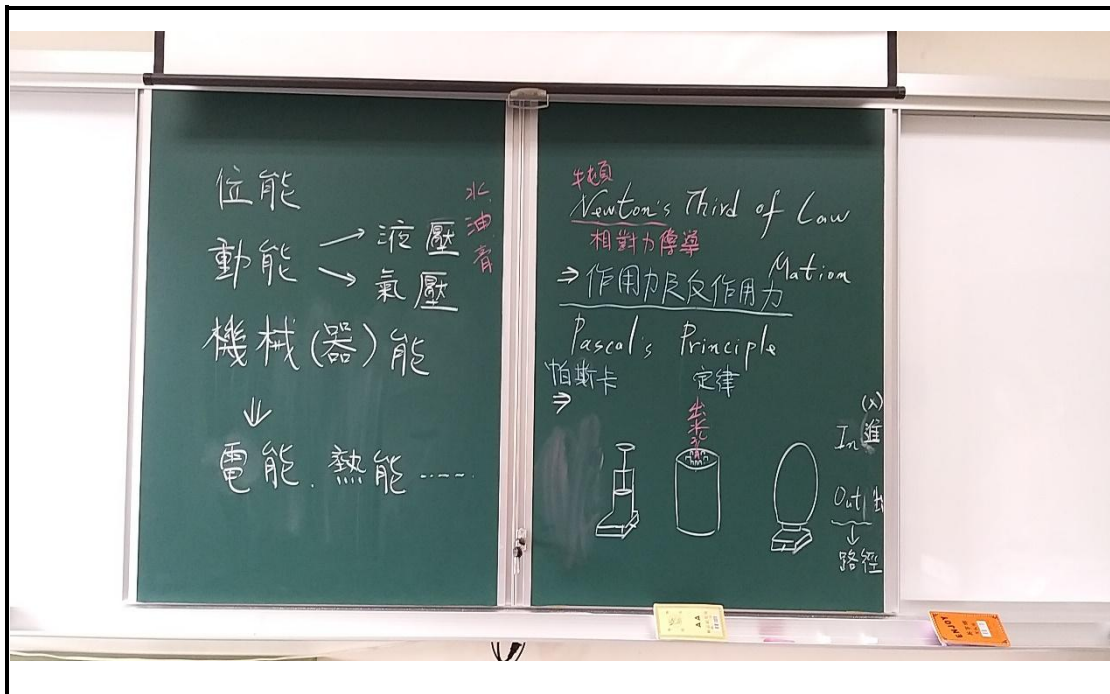 位能
動能 → 液壓
↘ 氣壓
水、油膏
機械(器)能
⇓
電能、熱能‥‥
牛頓
Newton's Third of Law
相對力傳導
Mation
⇒ 作用力反作用力
Pascal's Principle
帕斯卡 定律
⇒
出來水
(入)
In 進
Out 出
↓
路徑
ENJOY